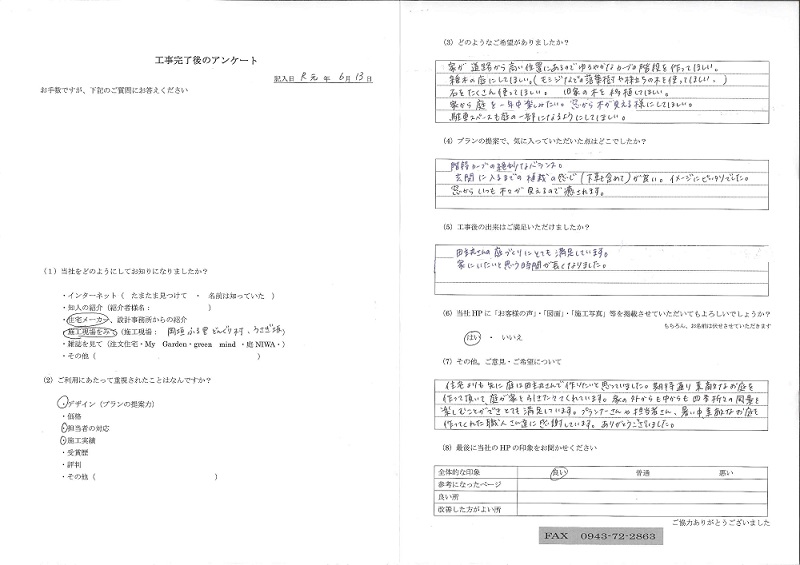 工事完了後のアンケート
記入日 R元 年 6月 13日
お手数ですが、下記のご質問にお答えください
(1) 当社をどのようにしてお知りになりましたか？
・インターネット（ たまたま見つけて ・ 名前は知っていた ）
・知人の紹介（紹介者様名： ）
・住宅メーカー、設計事務所からの紹介
・施工現場をみて（施工現場： 岡垣ふる里どんぐり村、うさぎ ）
・雑誌を見て（注文住宅・My Garden・green mind ・庭NIWA・）
・その他（ ）
(2) ご利用にあたって重視されたことはなんですか？
・デザイン（プランの提案力）
・価格
・担当者の対応
・施工実績
・受賞歴
・評判
・その他（ ）
(3) どのようなご希望がありましたか？
家が道路から高い位置にあるのでゆるやかなカーブの階段を作ってほしい。
雑木の庭にしてほしい。(モミジなどの落葉樹や株立ちの木を使ってほしい。)
石をたくさん使ってほしい。 旧家の木を移植してほしい。
家から庭を一年中楽しみたい。窓から木が見える様にしてほしい。
駐車スペースも庭の一部になるようにしてほしい。
(4) プランの提案で、気に入っていただいた点はどこでしたか？
階段カーブの絶妙なバランス。
玄関に入るまでの植栽の感じ(下草を含めて)が良い。イメージにピッタリでした。
窓からいつも木々が見えるので癒されます。
(5) 工事後の出来はご満足いただけましたか？
庭づくりにとても満足しています。
家にいたいと思う時間が長くなりました。
(6) 当社HPに「お客様の声」・「図面」・「施工写真」等を掲載させていただいてもよろしいでしょうか？
もちろん、お名前は伏せさせていただきます
はい ・ いいえ
(7) その他、ご意見・ご希望について
住宅よりも先に庭は で作りたいと思っていました。期待通り素敵なお庭を
作って頂いて、庭が家を引きたててくれています。家の外からも中からも四季折々の風景を
楽しむことができとても満足しています。プランナーさんや担当者さん、暑い中素敵なお庭を
作ってくれた職人さん達に感謝しています。ありがとうございました。
(8) 最後に当社のHPの印象をお聞かせください
全体的な印象 良い 普通 悪い
参考になったページ
良い所
改善した方がよい所
ご協力ありがとうございました
FAX 0943-72-2863